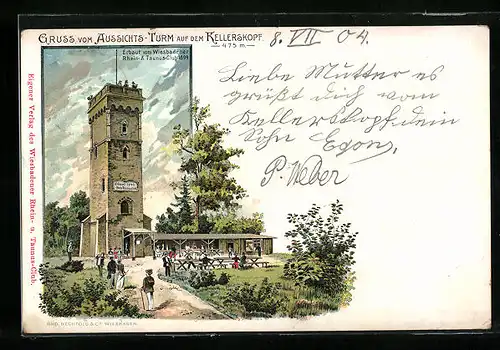 GRUSS VOM AUSSICHTS-TURM AUF DEM KELLERSKOPF.
475 m.
8. VII 04.
Erbaut vom Wiesbadener
Rhein- & Taunus-Club 1899
Liebe Mutter es
grüßt dich vom
Kellerskopf dein
Sohn Egon,
P. Weber
Eigener Verlag des Wiesbadener Rhein- u. Taunus-Club.
WIESBADEN